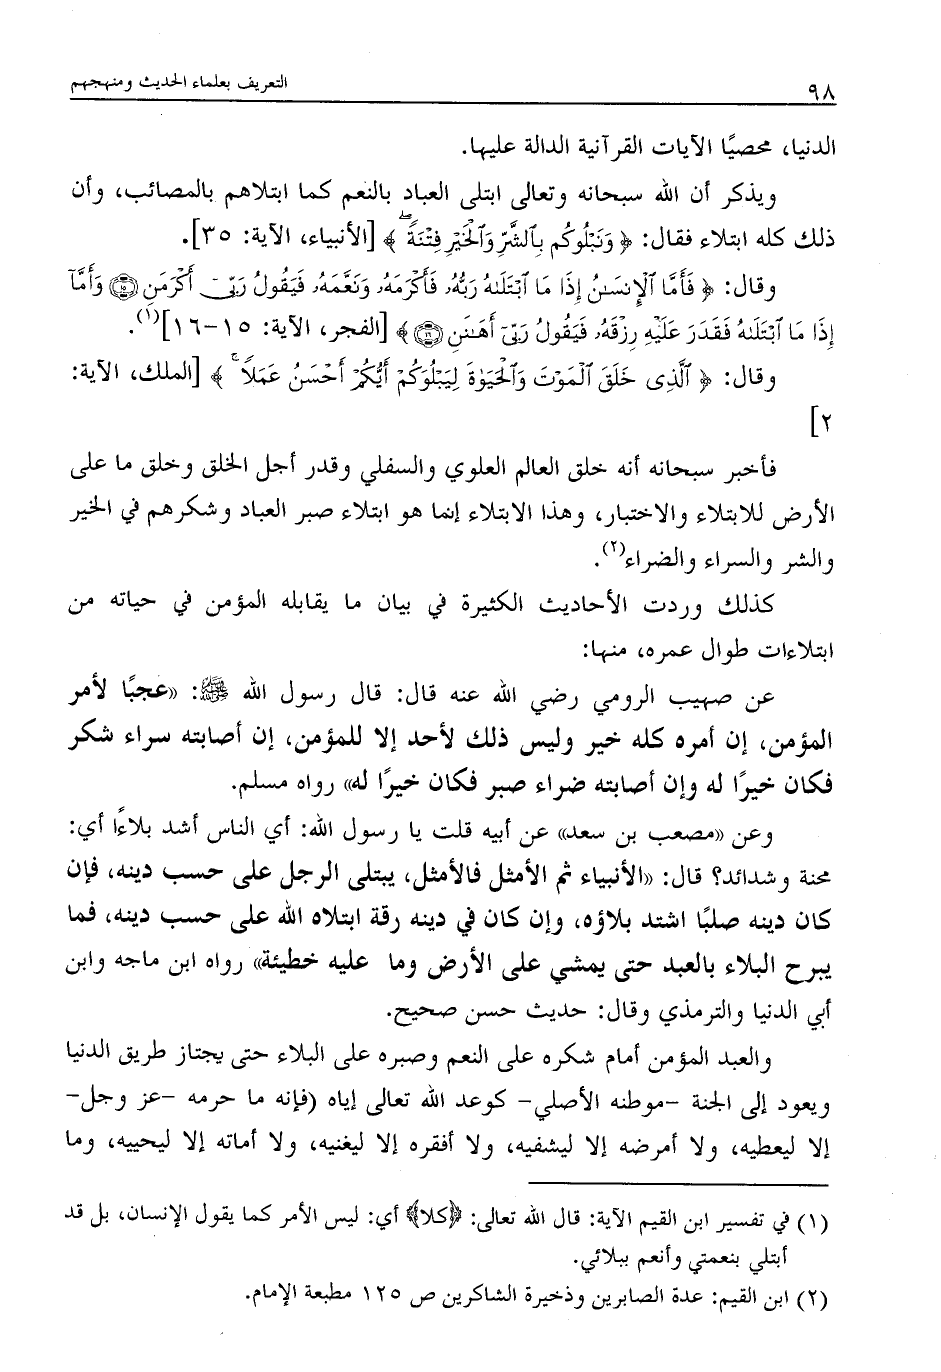 ٩٨ التعريف بعلماء الحديث ومنهجهم
الدنيا، محصيًا الآيات القرآنية الدالة عليها.
ويذكر أن الله سبحانه وتعالى ابتلى العباد بالنعم كما ابتلاهم بالمصائب، وأن
ذلك كله ابتلاء فقال: ﴿ وَنَبْلُوكُم بِٱلشَّرِّ وَٱلْخَيْرِ فِتْنَةً ۖ ﴾ [الأنبياء، الآية: ٣٥].
وقال: ﴿ فَأَمَّا ٱلْإِنسَٰنُ إِذَا مَا ٱبْتَلَىٰهُ رَبُّهُۥ فَأَكْرَمَهُۥ وَنَعَّمَهُۥ فَيَقُولُ رَبِّىٓ أَكْرَمَنِ ۝١٥ وَأَمَّآ
إِذَا مَا ٱبْتَلَىٰهُ فَقَدَرَ عَلَيْهِ رِزْقَهُۥ فَيَقُولُ رَبِّىٓ أَهَٰنَنِ ۝١٦ ﴾ [الفجر، الآية: ١٥-١٦](١).
وقال: ﴿ ٱلَّذِى خَلَقَ ٱلْمَوْتَ وَٱلْحَيَوٰةَ لِيَبْلُوَكُمْ أَيُّكُمْ أَحْسَنُ عَمَلًا ۚ ﴾ [الملك، الآية:
٢]
فأخبر سبحانه أنه خلق العالم العلوي والسفلي وقدر أجل الخلق وخلق ما على
الأرض للابتلاء والاختبار، وهذا الابتلاء إنما هو ابتلاء صبر العباد وشكرهم في الخير
والشر والسراء والضراء(٢).
كذلك وردت الأحاديث الكثيرة في بيان ما يقابله المؤمن في حياته من
ابتلاءات طوال عمره، منها:
عن صهيب الرومي رضي الله عنه قال: قال رسول الله ﷺ: «عجبًا لأمر
المؤمن، إن أمره كله خير وليس ذلك لأحد إلا للمؤمن، إن أصابته سراء شكر
فكان خيرًا له وإن أصابته ضراء صبر فكان خيرًا له» رواه مسلم.
وعن «مصعب بن سعد» عن أبيه قلت يا رسول الله: أي الناس أشد بلاءًا أي:
محنة وشدائد؟ قال: «الأنبياء ثم الأمثل فالأمثل، يبتلى الرجل على حسب دينه، فإن
كان دينه صلبًا اشتد بلاؤه، وإن كان في دينه رقة ابتلاه الله على حسب دينه، فما
يبرح البلاء بالعبد حتى يمشي على الأرض وما عليه خطيئة» رواه ابن ماجه وابن
أبي الدنيا والترمذي وقال: حديث حسن صحيح.
والعبد المؤمن أمام شكره على النعم وصبره على البلاء حتى يجتاز طريق الدنيا
ويعود إلى الجنة -موطنه الأصلي- كوعد الله تعالى إياه (فإنه ما حرمه -عز وجل-
إلا ليعطيه، ولا أمرضه إلا ليشفيه، ولا أفقره إلا ليغنيه، ولا أماته إلا ليحييه، وما
(١) في تفسير ابن القيم الآية: قال الله تعالى: ﴿كلا﴾ أي: ليس الأمر كما يقول الإنسان، بل قد
أبتلي بنعمتي وأنعم ببلائي.
(٢) ابن القيم: عدة الصابرين وذخيرة الشاكرين ص ١٢٥ مطبعة الإمام.